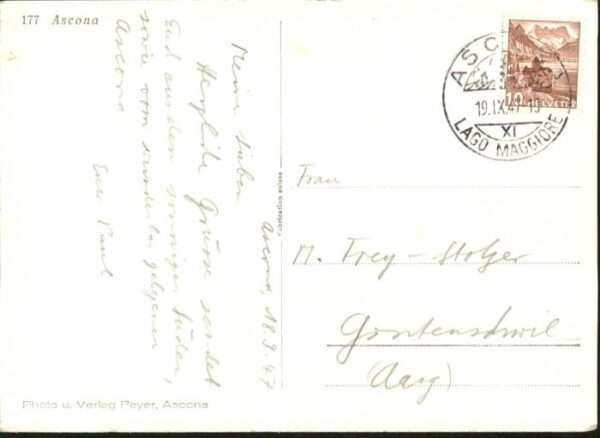 177 Ascona
Ascona, 18.9.47
Meine Lieben
Herzliche Grüsse sendet
Euch aus dem sonnigen Süden,
sowie vom wunderbar gelegenen
Ascona
Euer Paul
Fabrication suisse
ASCONA
19.IX.47-15
XI
LAGO MAGGIORE
10 HELVETIA
Frau
M. Frey-Stolzer
Gontenschwil
(Aarg)
Photo u. Verlag Peyer, Ascona